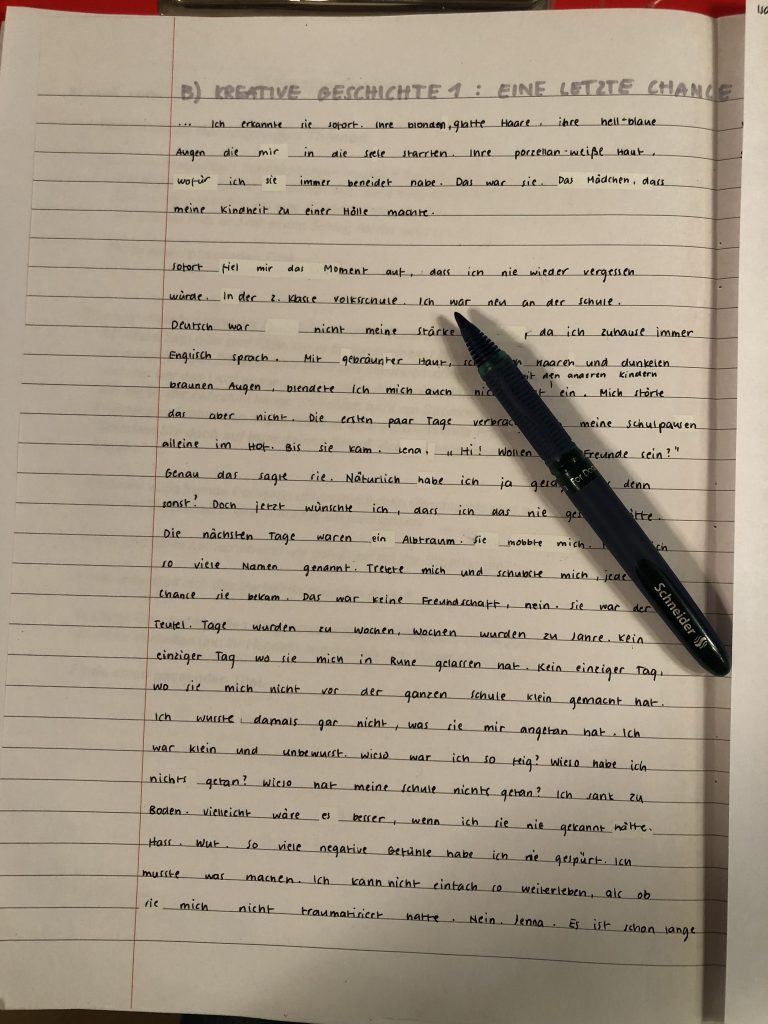 B) KREATIVE GESCHICHTE 1 : EINE LETZTE CHANCE
... Ich erkannte sie sofort. Ihre blonden, glatte Haare, ihre hell-blaue
Augen die mir in die Seele starrten. Ihre porzellan-weiße Haut,
wofür ich sie immer beneidet habe. Das war sie. Das Mädchen, dass
meine Kindheit zu einer Hölle machte.
Sofort fiel mir das Moment auf, dass ich nie wieder vergessen
würde. In der 2. Klasse Volksschule. Ich war neu an der Schule.
Deutsch war nicht meine Stärke, da ich zuhause immer
Englisch sprach. Mit gebräunter Haut, Haaren und dunkelen
den anderen Kindern
braunen Augen, blendete ich mich auch ein. Mich störte
das aber nicht. Die ersten paar Tage meine Schulpausen
alleine im Hof. Bis sie kam. Lena. „Hi! Wollen Freunde sein?"
Genau das sagte sie. Näturlich habe ich ja denn
sonst? Doch jetzt wünschte ich, dass ich das nie
Die nächsten Tage waren ein Albtraum. Sie mobbte mich.
so viele Namen genannt. Tretete mich und schubste mich, jede
Chance sie bekam. Das war keine Freundschaft, nein. Sie war der
Teufel. Tage wurden zu Wochen, Wochen wurden zu Jahre. Kein
einziger Tag wo sie mich in Ruhe gelassen hat. Kein einziger Tag,
wo sie mich nicht vor der ganzen Schule klein gemacht hat.
Ich wusste damals gar nicht, was sie mir angetan hat. Ich
war klein und unbewusst. Wieso war ich so feig? Wieso habe ich
nichts getan? Wieso hat meine Schule nichts getan? Ich sank zu
Boden. Vielleicht wäre es besser, wenn ich sie nie gekannt hätte.
Hass. Wut. So viele negative Gefühle habe ich nie gespürt. Ich
musste was machen. Ich kann nicht einfach so weiterleben, als ob
sie mich nicht traumatisiert hatte. Nein. Jenna. Es ist schon lange
Schneider